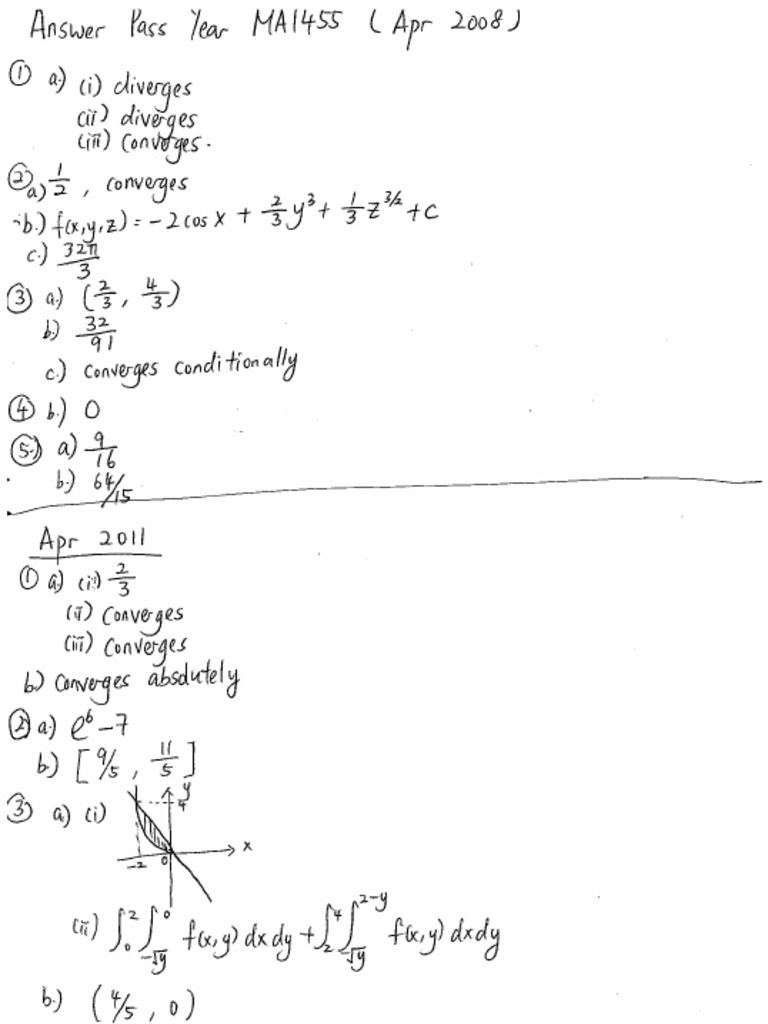 Answer Pass Year MA1455 (Apr 2008)
① a.) (i) diverges
(ii) diverges
(iii) Converges.
② a) 1/2, converges
b.) f(x,y,z) = -2 cos x + 2/3 y³ + 1/3 z^3/2 + c
c.) 32π/3
③ a.) (2/3, 4/3)
b.) 32/91
c.) converges conditionally
④ b.) 0
⑤ a) 9/16
b.) 64/15
Apr 2011
① a) (i) 2/3
(ii) Converges
(iii) Converges
b.) Converges absolutely
② a.) e⁶ - 7
b.) [9/5, 11/5]
③ a) (i)
y
4
x
-2 0
(ii) ∫₀² ∫_{-√y}^0 f(x,y) dx dy + ∫₂⁴ ∫_{-√y}^{2-y} f(x,y) dx dy
b.) (4/5, 0)